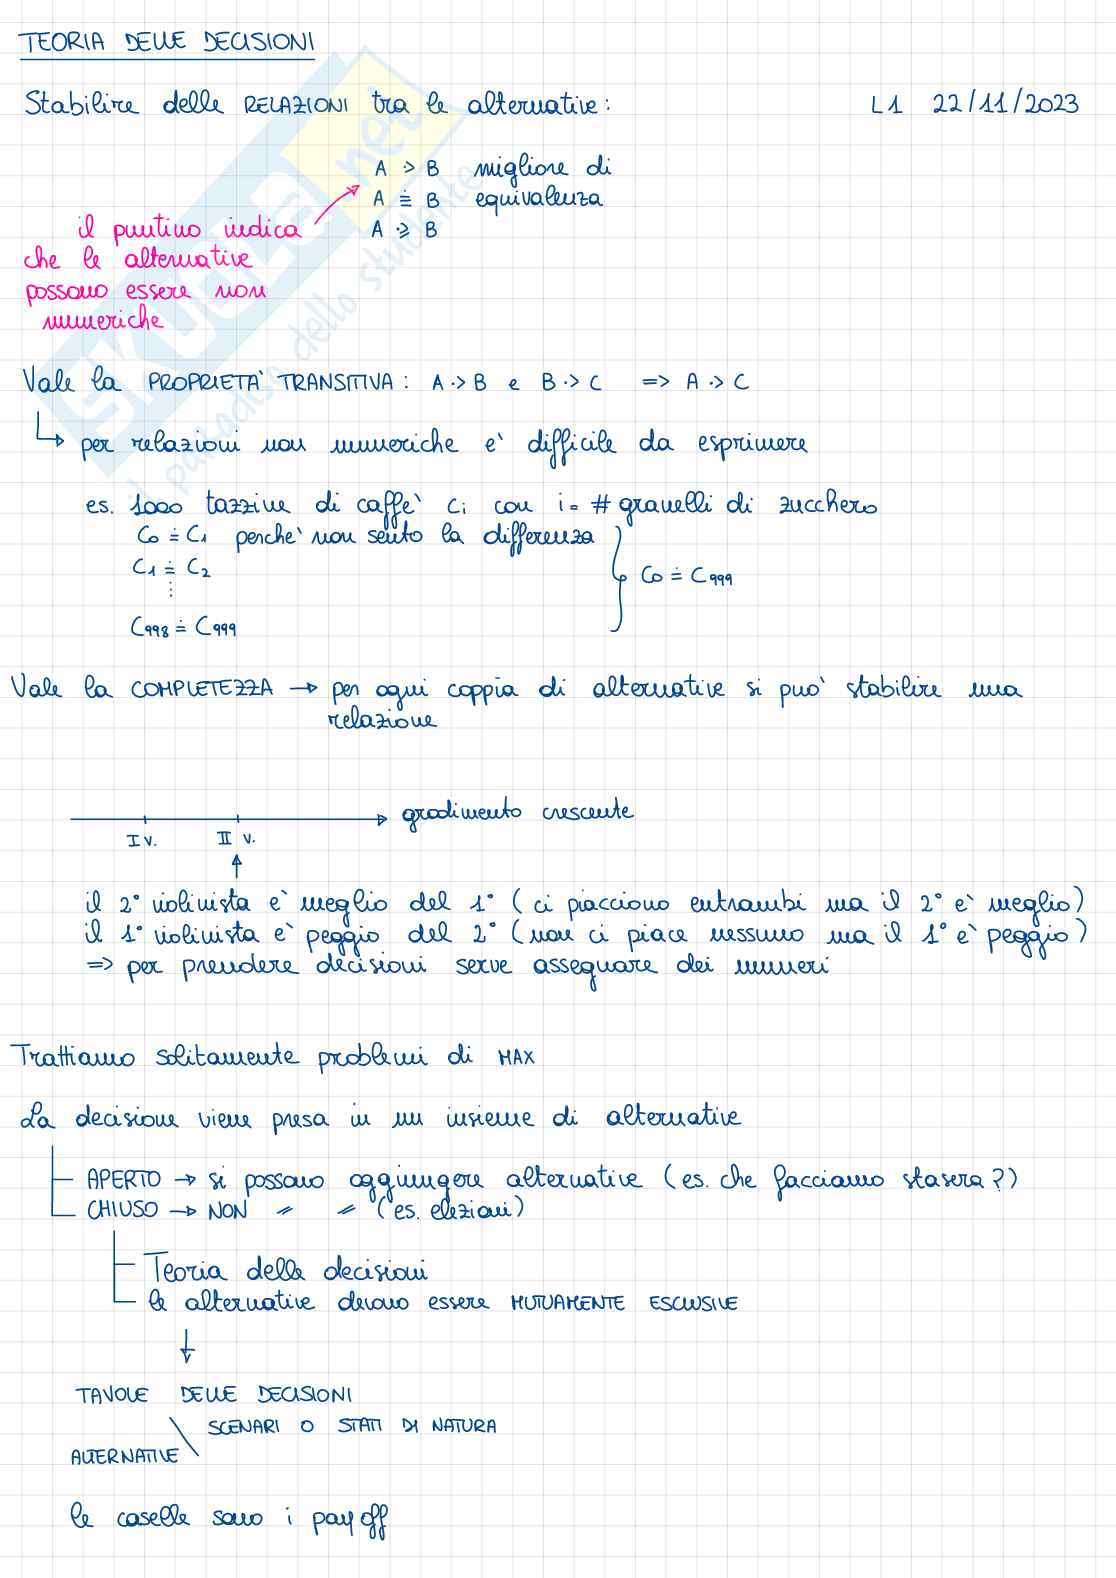 TEORIA DELLE DECISIONI
Stabilire delle RELAZIONI tra le alternative: L1 22/11/2023
A ·> B migliore di
A ≐ B equivalenza
A ·≥ B
il puntino indica
che le alternative
possono essere non
numeriche
Vale la PROPRIETA' TRANSITIVA: A ·> B e B ·> C => A ·> C
↳ per relazioni non numeriche e' difficile da esprimere
es. 1000 tazzine di caffe' Ci con i = # granelli di zucchero
C0 ≐ C1 perche' non sento la differenza
C1 ≐ C2
⋮
C0 ≐ C999
C998 ≐ C999
Vale la COMPLETEZZA → per ogni coppia di alternative si puo' stabilire una
relazione
gradimento crescente
I v. II v.
il 2° violinista e' meglio del 1° (ci piacciono entrambi ma il 2° e' meglio)
il 1° violinista e' peggio del 2° (non ci piace nessuno ma il 1° e' peggio)
=> per prendere decisioni serve assegnare dei numeri
Trattiamo solitamente problemi di MAX
La decisione viene presa in un insieme di alternative
APERTO → si possono aggiungere alternative (es. che facciamo stasera?)
CHIUSO → NON " " (es. elezioni)
Teoria delle decisioni
le alternative devono essere MUTUAMENTE ESCLUSIVE
↓
TAVOLE DELLE DECISIONI
\ SCENARI O STATI DI NATURA
ALTERNATIVE
le caselle sono i pay off
skuola.net
il paradiso dello studente